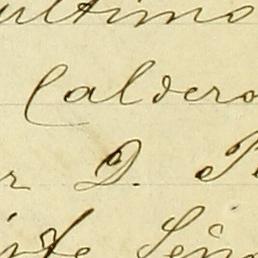 ultimo
Caldero
r D. P
Seño